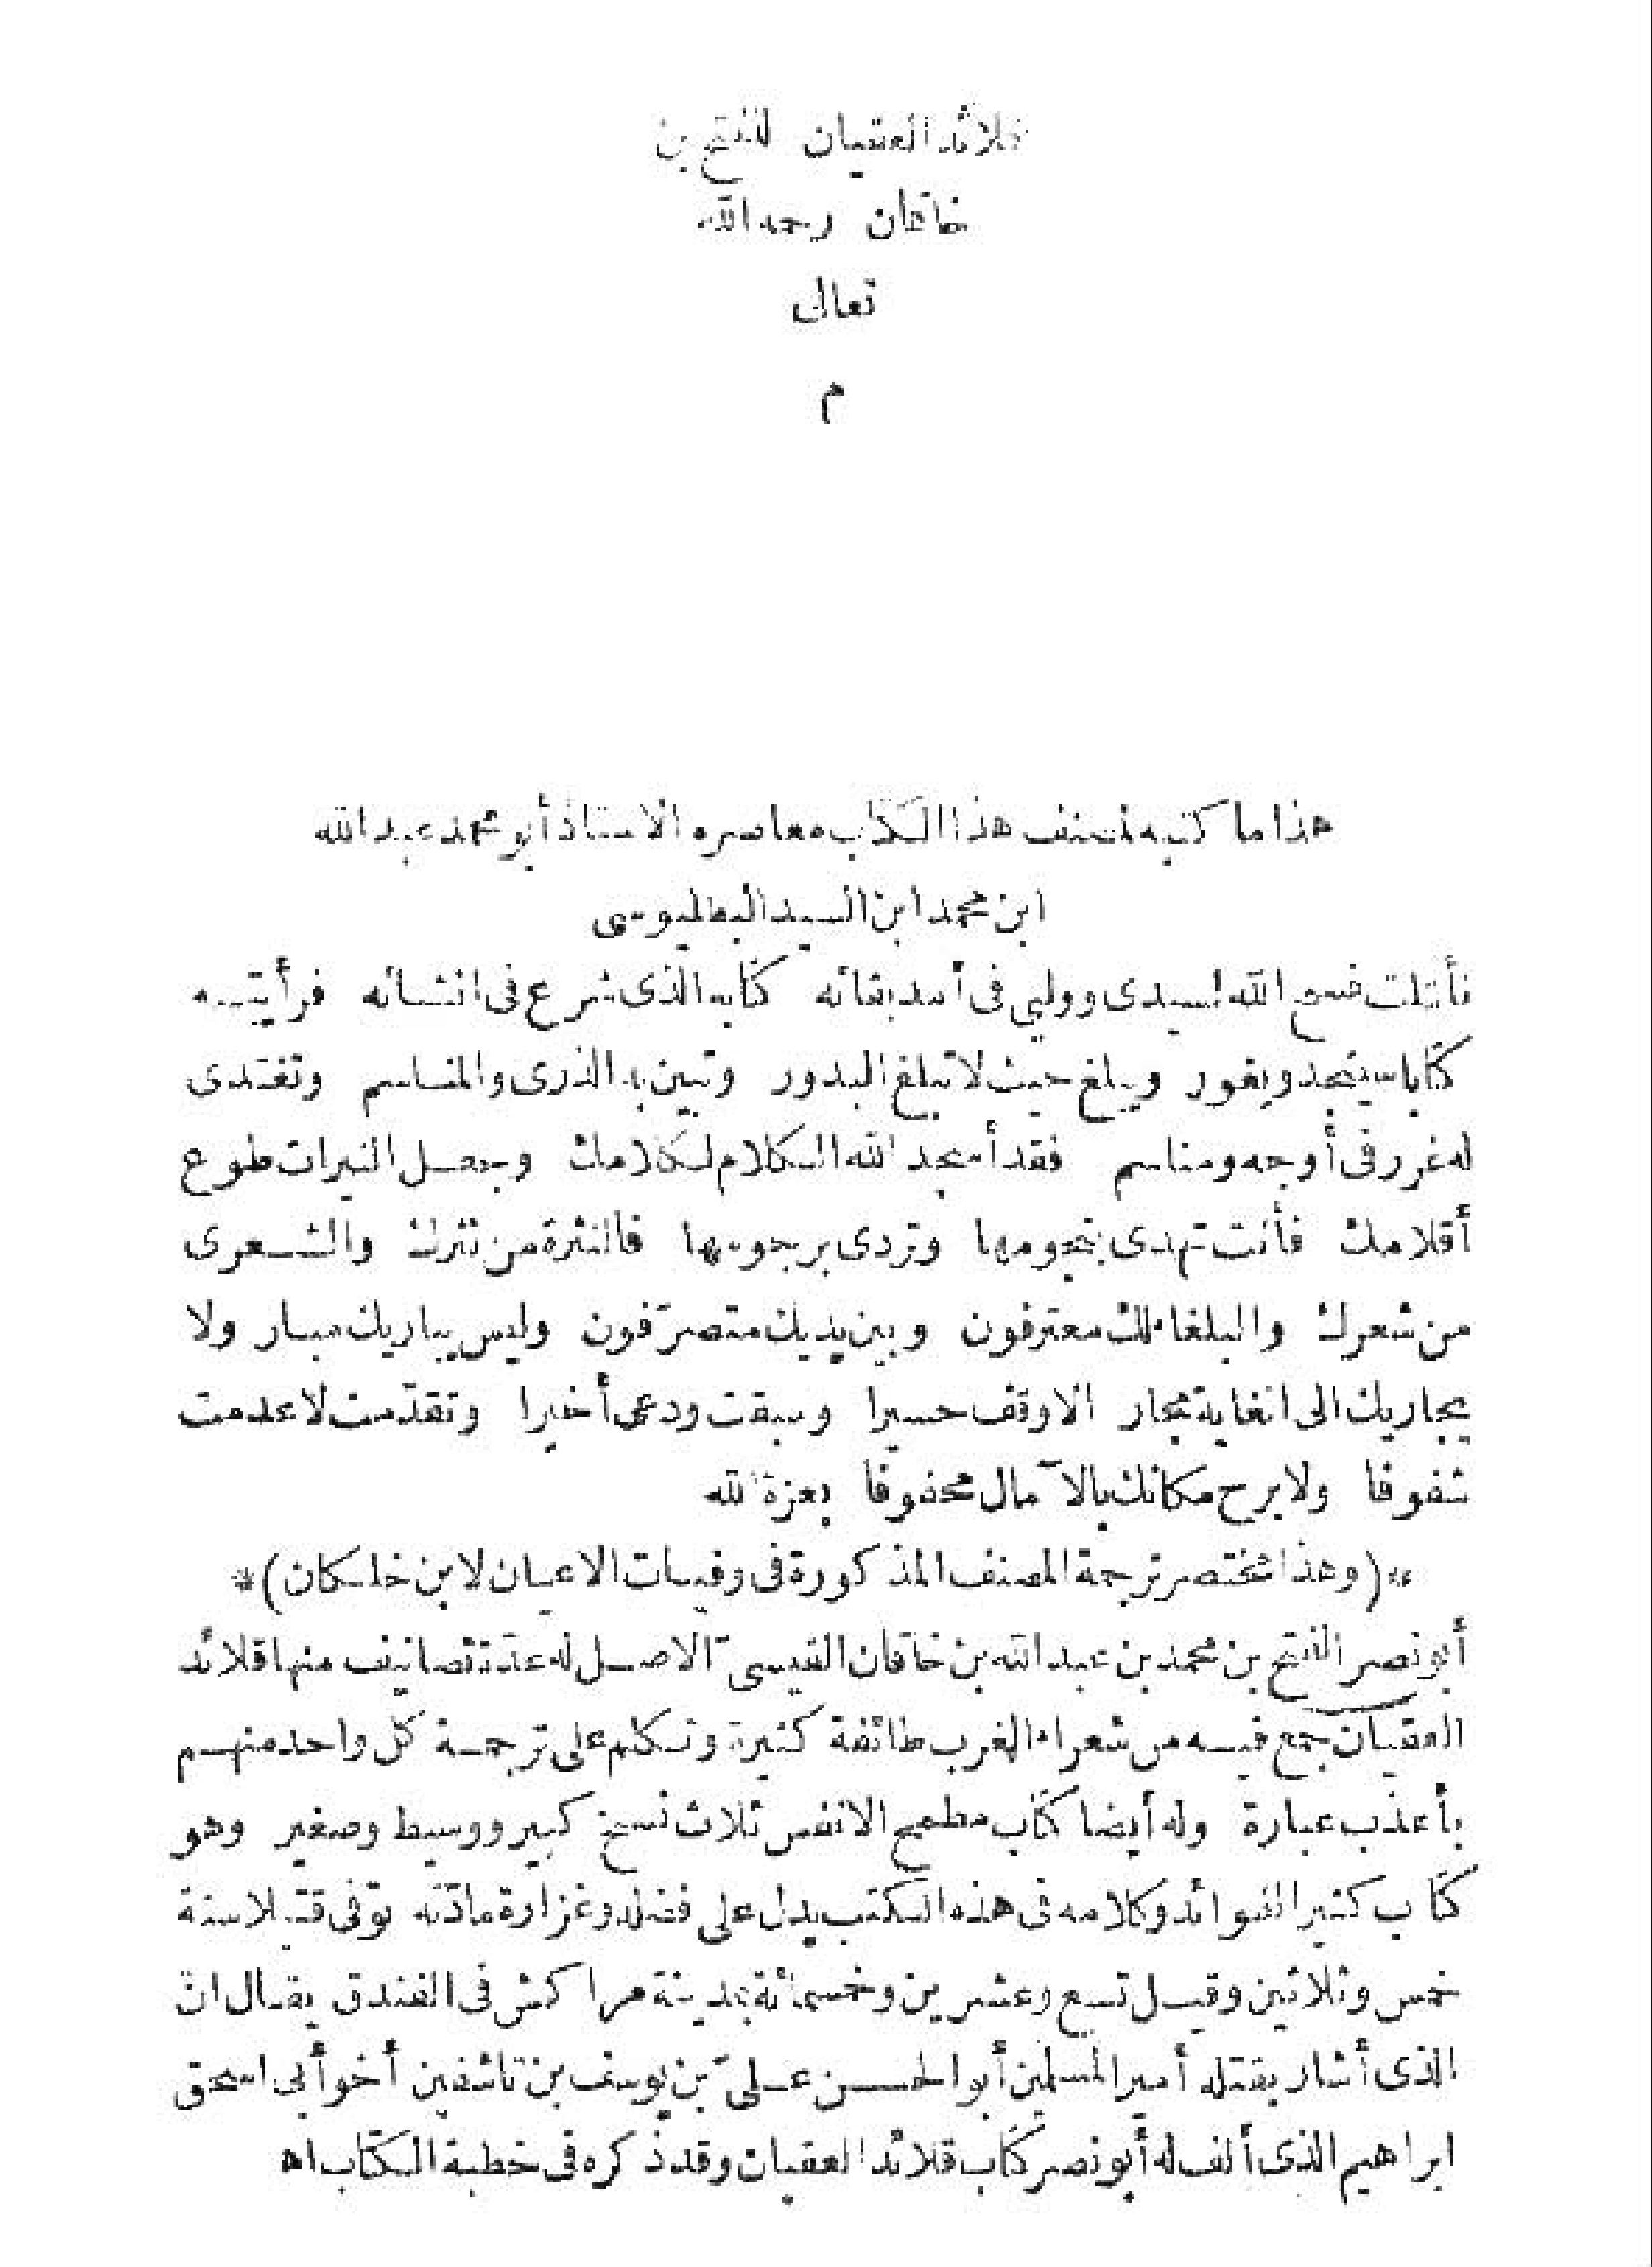 قلائد العقيان للفتح بن
خاقان رحمه الله
تعالى
م
هذا ما كتبه لمصنف هذا الكتاب معاصره الاستاذ أبو محمد عبد الله
ابن محمد ابن السيد البطليوسى
تأملت فسح الله لسيدى ووليى فى أمد بقائه كتابه الذى شرع فى انشائه فرأيته
كتابا سينجد ويغور ويبلغ حيث لا تبلغ البدور وتبين به الذرى والمناسم وتغتدى
له غرر فى أوجه ومناسم فقد أسجد الله الكلام لكلامك وجعل النيرات طوع
أقلامك فأنت تهدى بنجومها وتردى برجومها فالنثرة من نثرك والشعرى
من شعرك والبلغاء لك معترفون وبين يديك متصرّفون وليس يباريك مبار ولا
يجاريك الى الغاية مجار الا وقف حسيرا وسبقت ودعى أخيرا وتقدّمت لا عدمت
شفوفا ولا برح مكانك بالآمال محفوفا بعزة الله
*(وهذا مختصر ترجمة المصنف المذكورة فى وفيات الاعيان لابن خلكان)*
أبو نصر الفتح بن محمد بن عبد الله بن خاقان القيسىّ الاصل له عدّة تصانيف منها قلائد
العقيان جمع فيه من شعراء المغرب طائفة كثيرة وتكلم على ترجمة كل واحد منهم
بأعذب عبارة وله أيضا كتاب مطمح الانفس ثلاث نسخ كبير ووسيط وصغير وهو
كتاب كثير الفوائد وكلامه فى هذه الكتب يدل على فضله وغزارة مادّته توفى قتيلا سنة
خمس وثلاثين وقيل تسع وعشرين وخمسمائة بمدينة مراكش فى الفندق يقال انّ
الذى أشار بقتله أمير المسلمين أبو الحسن علىّ بن يوسف بن تاشفين أخو أبى اسحق
ابراهيم الذى ألف له أبو نصر كتاب قلائد العقيان وقد ذكره فى خطبة الكتاب اه